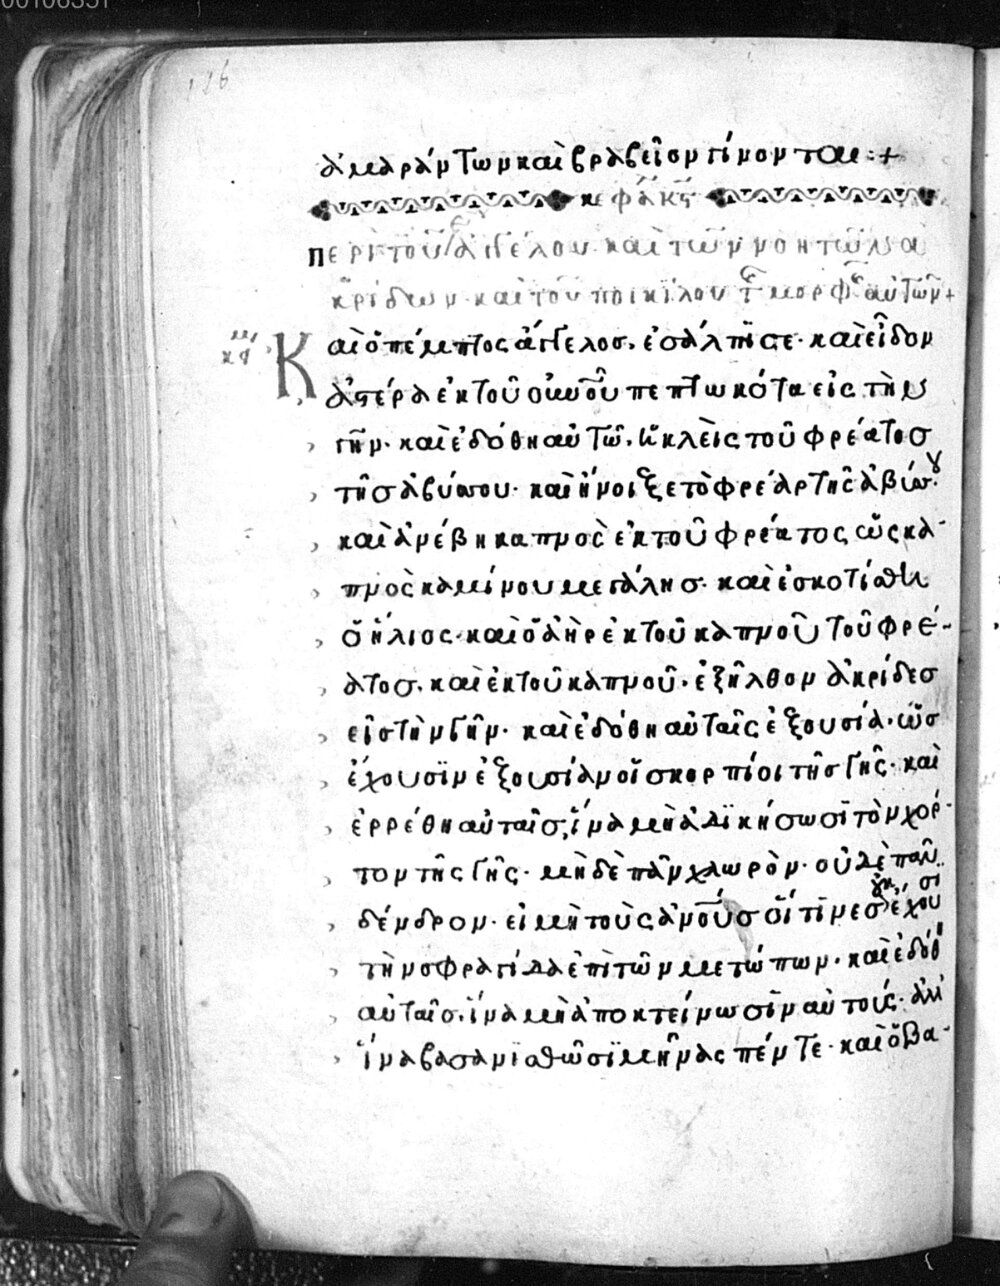 00106351
126
ἀμαράντων καὶ βραβεῖον γίνονται :+
κεφά κϛ
περὶ τοῦ ε ἀγγέλου· καὶ τῶν νοητῶν ἀ
κρίδων· καὶ τοῦ ποικίλου τῆς μορφῆς αὐτῶν +
Καὶ ὁ πέμπτος ἄγγελος ἐσάλπισε· καὶ εἶδον
κϛ
ἀστέρα ἐκ τοῦ οὐνοῦ πεπτωκότα εἰς τὴν
γῆν· καὶ ἐδόθη αὐτῶ, ἡ κλεὶς τοῦ φρέατος
τῆς ἀβύσσου· καὶ ἤνοιξε τὸ φρέαρ τῆς ἀβύσσου·
καὶ ἀνέβη καπνὸς ἐκ τοῦ φρέατος ὡς κα-
πνὸς καμίνου μεγάλης· καὶ ἐσκοτίσθη
ὁ ἥλιος· καὶ ὁ ἀὴρ ἐκ τοῦ καπνοῦ τοῦ φρέ-
ατος. καὶ ἐκ τοῦ καπνοῦ· ἐξῆλθον ἀκρίδες
εἰς τὴν γῆν· καὶ ἐδόθη αὐταῖς ἐξουσία· ὡς
ἔχουσϊν ἐξουσίαν οἱ σκορπίοι τῆς γῆς· καὶ
ἐρρέθη αὐταῖς, ἵνα μὴ ἀδϊκήσωσϊ τὸν χόρ-
τον τῆς γῆς· μὴδὲ πᾶν χλωρὸν· οὐδὲ πᾶν
δένδρον· εἰ μὴ τοὺς ἀνοὺς οἵτϊνες ἔχουσι
τὴν σφραγίδα ἐπὶ τῶν μετώπων· καὶ ἐδόθη
αὐταῖς, ἵνα μὴ ἀποκτείνωσϊν αὐτούς· ἀλλ
ἵνα βασανϊσθῶσϊ μῆνας πέντε· καὶ ὁ βα-